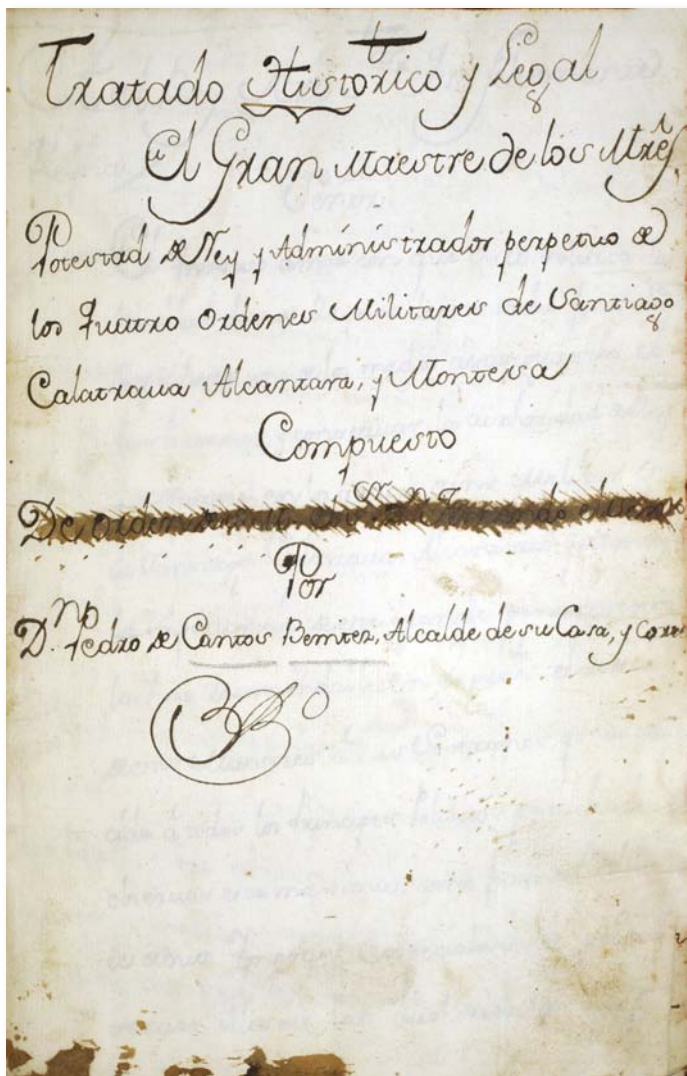 Tratado Historico y Legal
El Gran Maestre de los Mrẽs.
Potestad de Rey y Administrador perpetuo de
los quatro Ordenes Militares de Santiago
Calatraua Alcantara, y Montesa
Compuesto
De Orden Fernando el
Por
D.ⁿ Pedro de Cantos Benitez, Alcalde de su Casa, y Corte